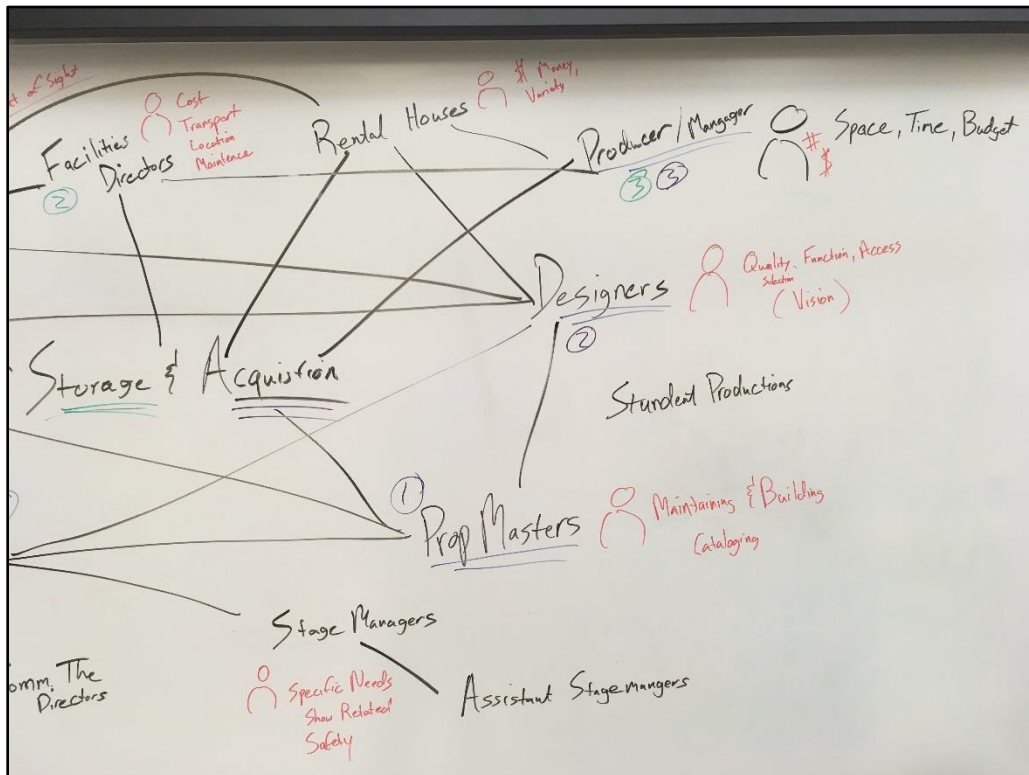 t of Sight
Cost
Transport
Location
Maintence
Facilities
Directors
2
Rental Houses
$ Money,
Variety
Producer/Mangager
3 3
#
$
Space, Time, Budget
Designers
2
Quality, Function, Access
Selection
(Vision)
Storage & Acquistion
Stundent Productions
1
Prop Masters
Maintaining & Building
Cataloging
Stage Managers
Specific Needs
Show Related
Safety
Assistant Stagemangers
omm. The
Directors